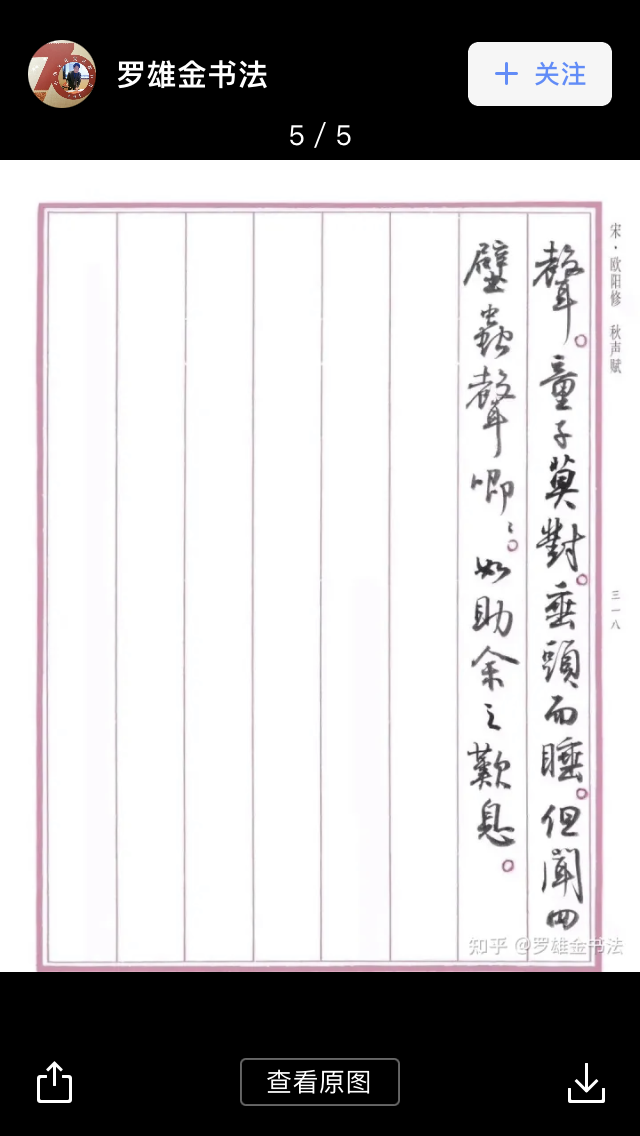 罗雄金书法
+ 关注
5 / 5
宋·欧阳修 秋声赋
三一八
聲。童子莫對。垂頭而睡。但聞四
壁蟲聲唧〻。如助余之歎息。
知乎 @罗雄金书法
查看原图